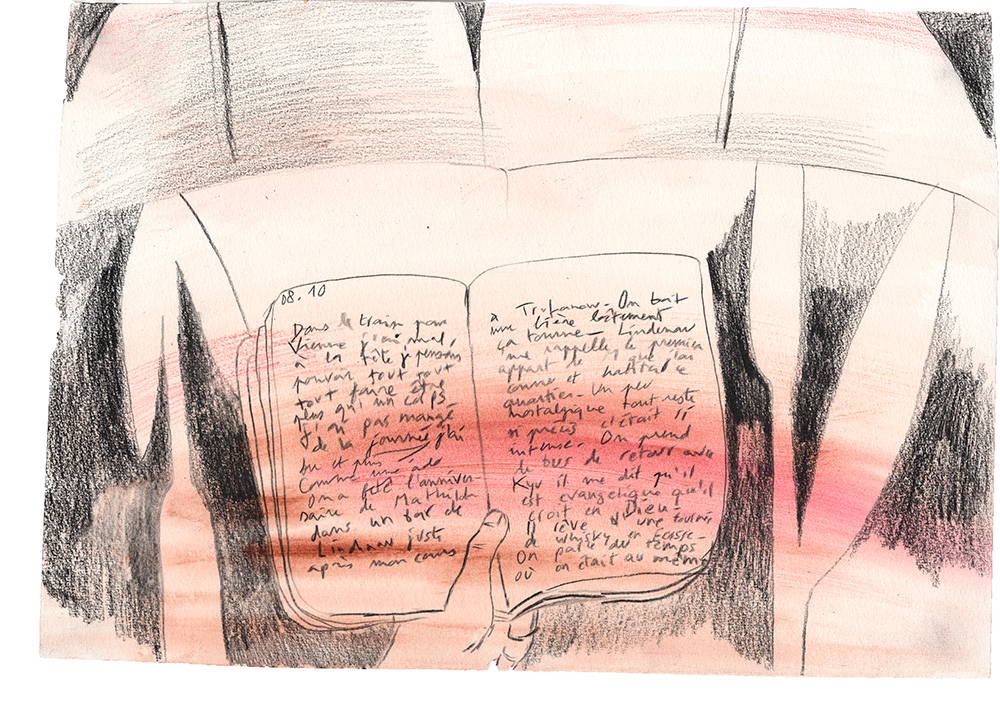 08.10
Dans le train pour
Vienne j'ai mal,
à la tête je pensais
pouvoir tout tout
tout faire être
plus qu'un corps.
J'ai pas mangé
de la journée j'ai
bu et plus
Comme une ado
On a fêté l'anniver-
saire de Mathilde
dans un bar de
Lindenau juste
après mon cours
à Trotzanow. On boit
une bière lentement
ça tourne. Lindenau
me rappelle le premier
appart de que las
conne et
quartier. Un peu
nostalgique tout reste
si précis c'était si
intense. On prend
le bus de retour avec
Kyu il me dit qu'il
est évangélique qu'il
croit en Dieu.
Il rêve d'une tournée
de whisky en Ecosse.
On parle du temps
où on était au même